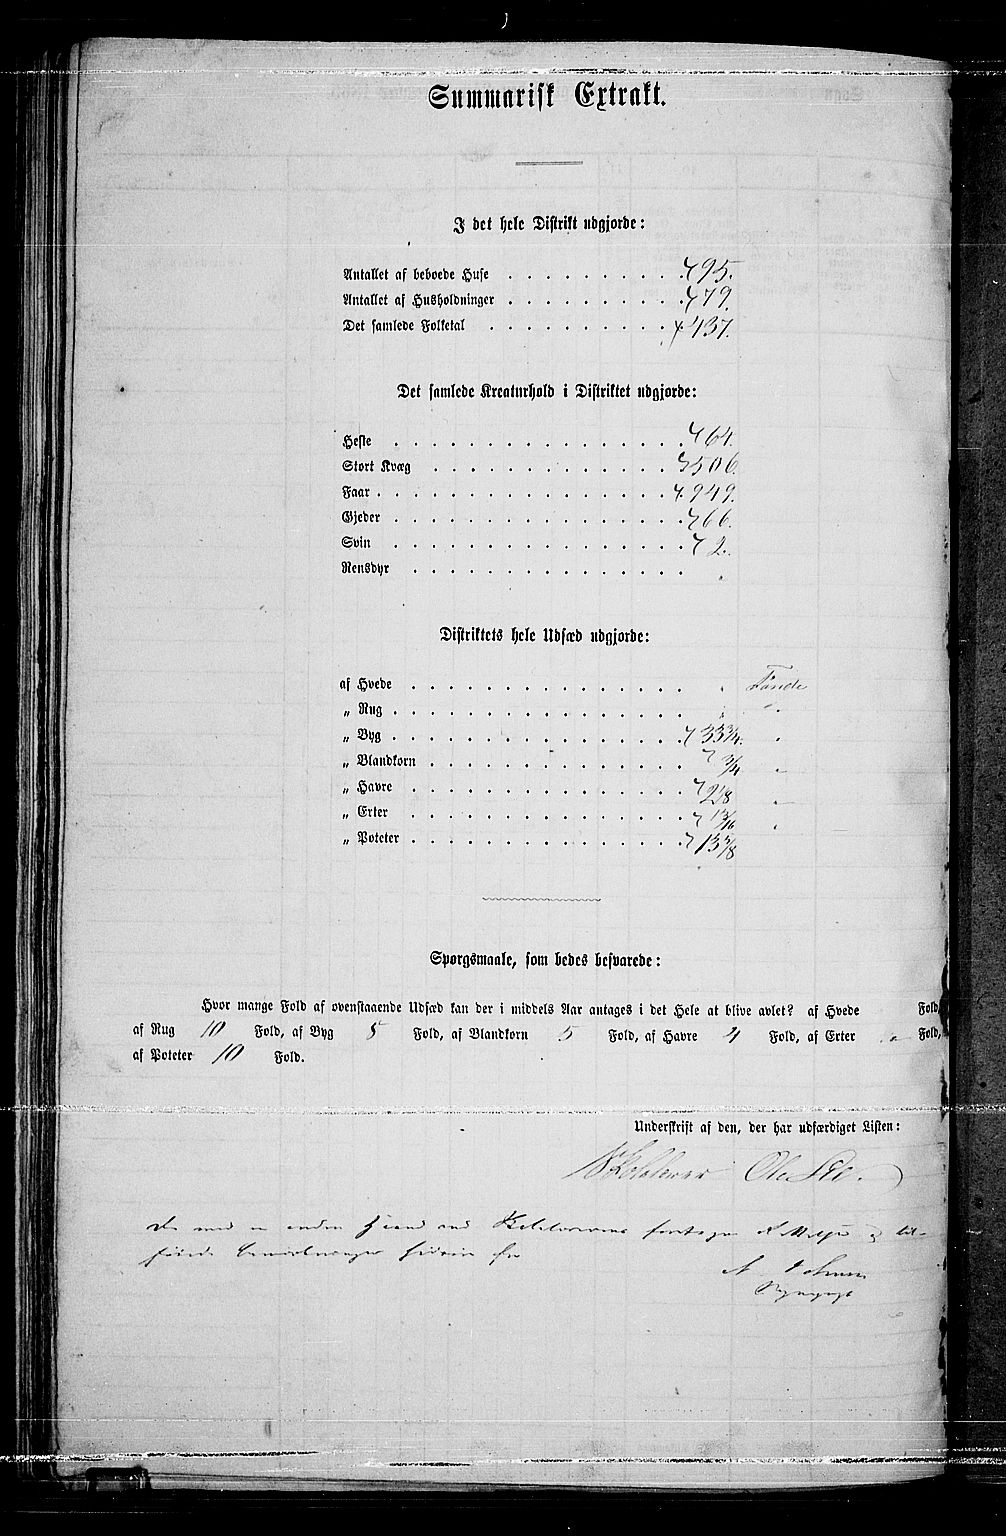 Summarisk Extrakt.
I det hele Distrikt udgjorde:
Antallet af beboede Huse . . . . . . . . . . 95.
Antallet af Husholdninger . . . . . . . . . . 79.
Det samlede Folketal . . . . . . . . . . 437.
Det samlede Kreaturhold i Distriktet udgjorde:
Heste . . . . . . . . . . 64.
Stort Kvæg . . . . . . . . . . 506.
Faar . . . . . . . . . . 949.
Gjeder . . . . . . . . . . 66.
Svin . . . . . . . . . . 2.
Rensdyr . . . . . . . . . . "
Distriktets hele Udsæd udgjorde:
af Hvede . . . . . . . . . . " Tønde
„ Rug . . . . . . . . . . " "
„ Byg . . . . . . . . . . 35 3/4. "
„ Blandkorn . . . . . . . . . . 3/4 "
„ Havre . . . . . . . . . . "
„ Erter . . . . . . . . . . "
„ Poteter . . . . . . . . . . 13 5/8
Spørgsmaale, som bedes besvarede:
Hvor mange Fold af ovenstaaende Udsæd kan der i middels Aar antages i det Hele at blive avlet? af Hvede Fold,
af Rug 10 Fold, af Byg 5 Fold, af Blandkorn 5 Fold, af Havre 4 Fold, af Erter " Fold,
af Poteter 10 Fold.
Underskrift af den, der har udfærdiget Listen:
Ole
De med en anden Haand end rettelser og til-
førte Bemærkninger
A